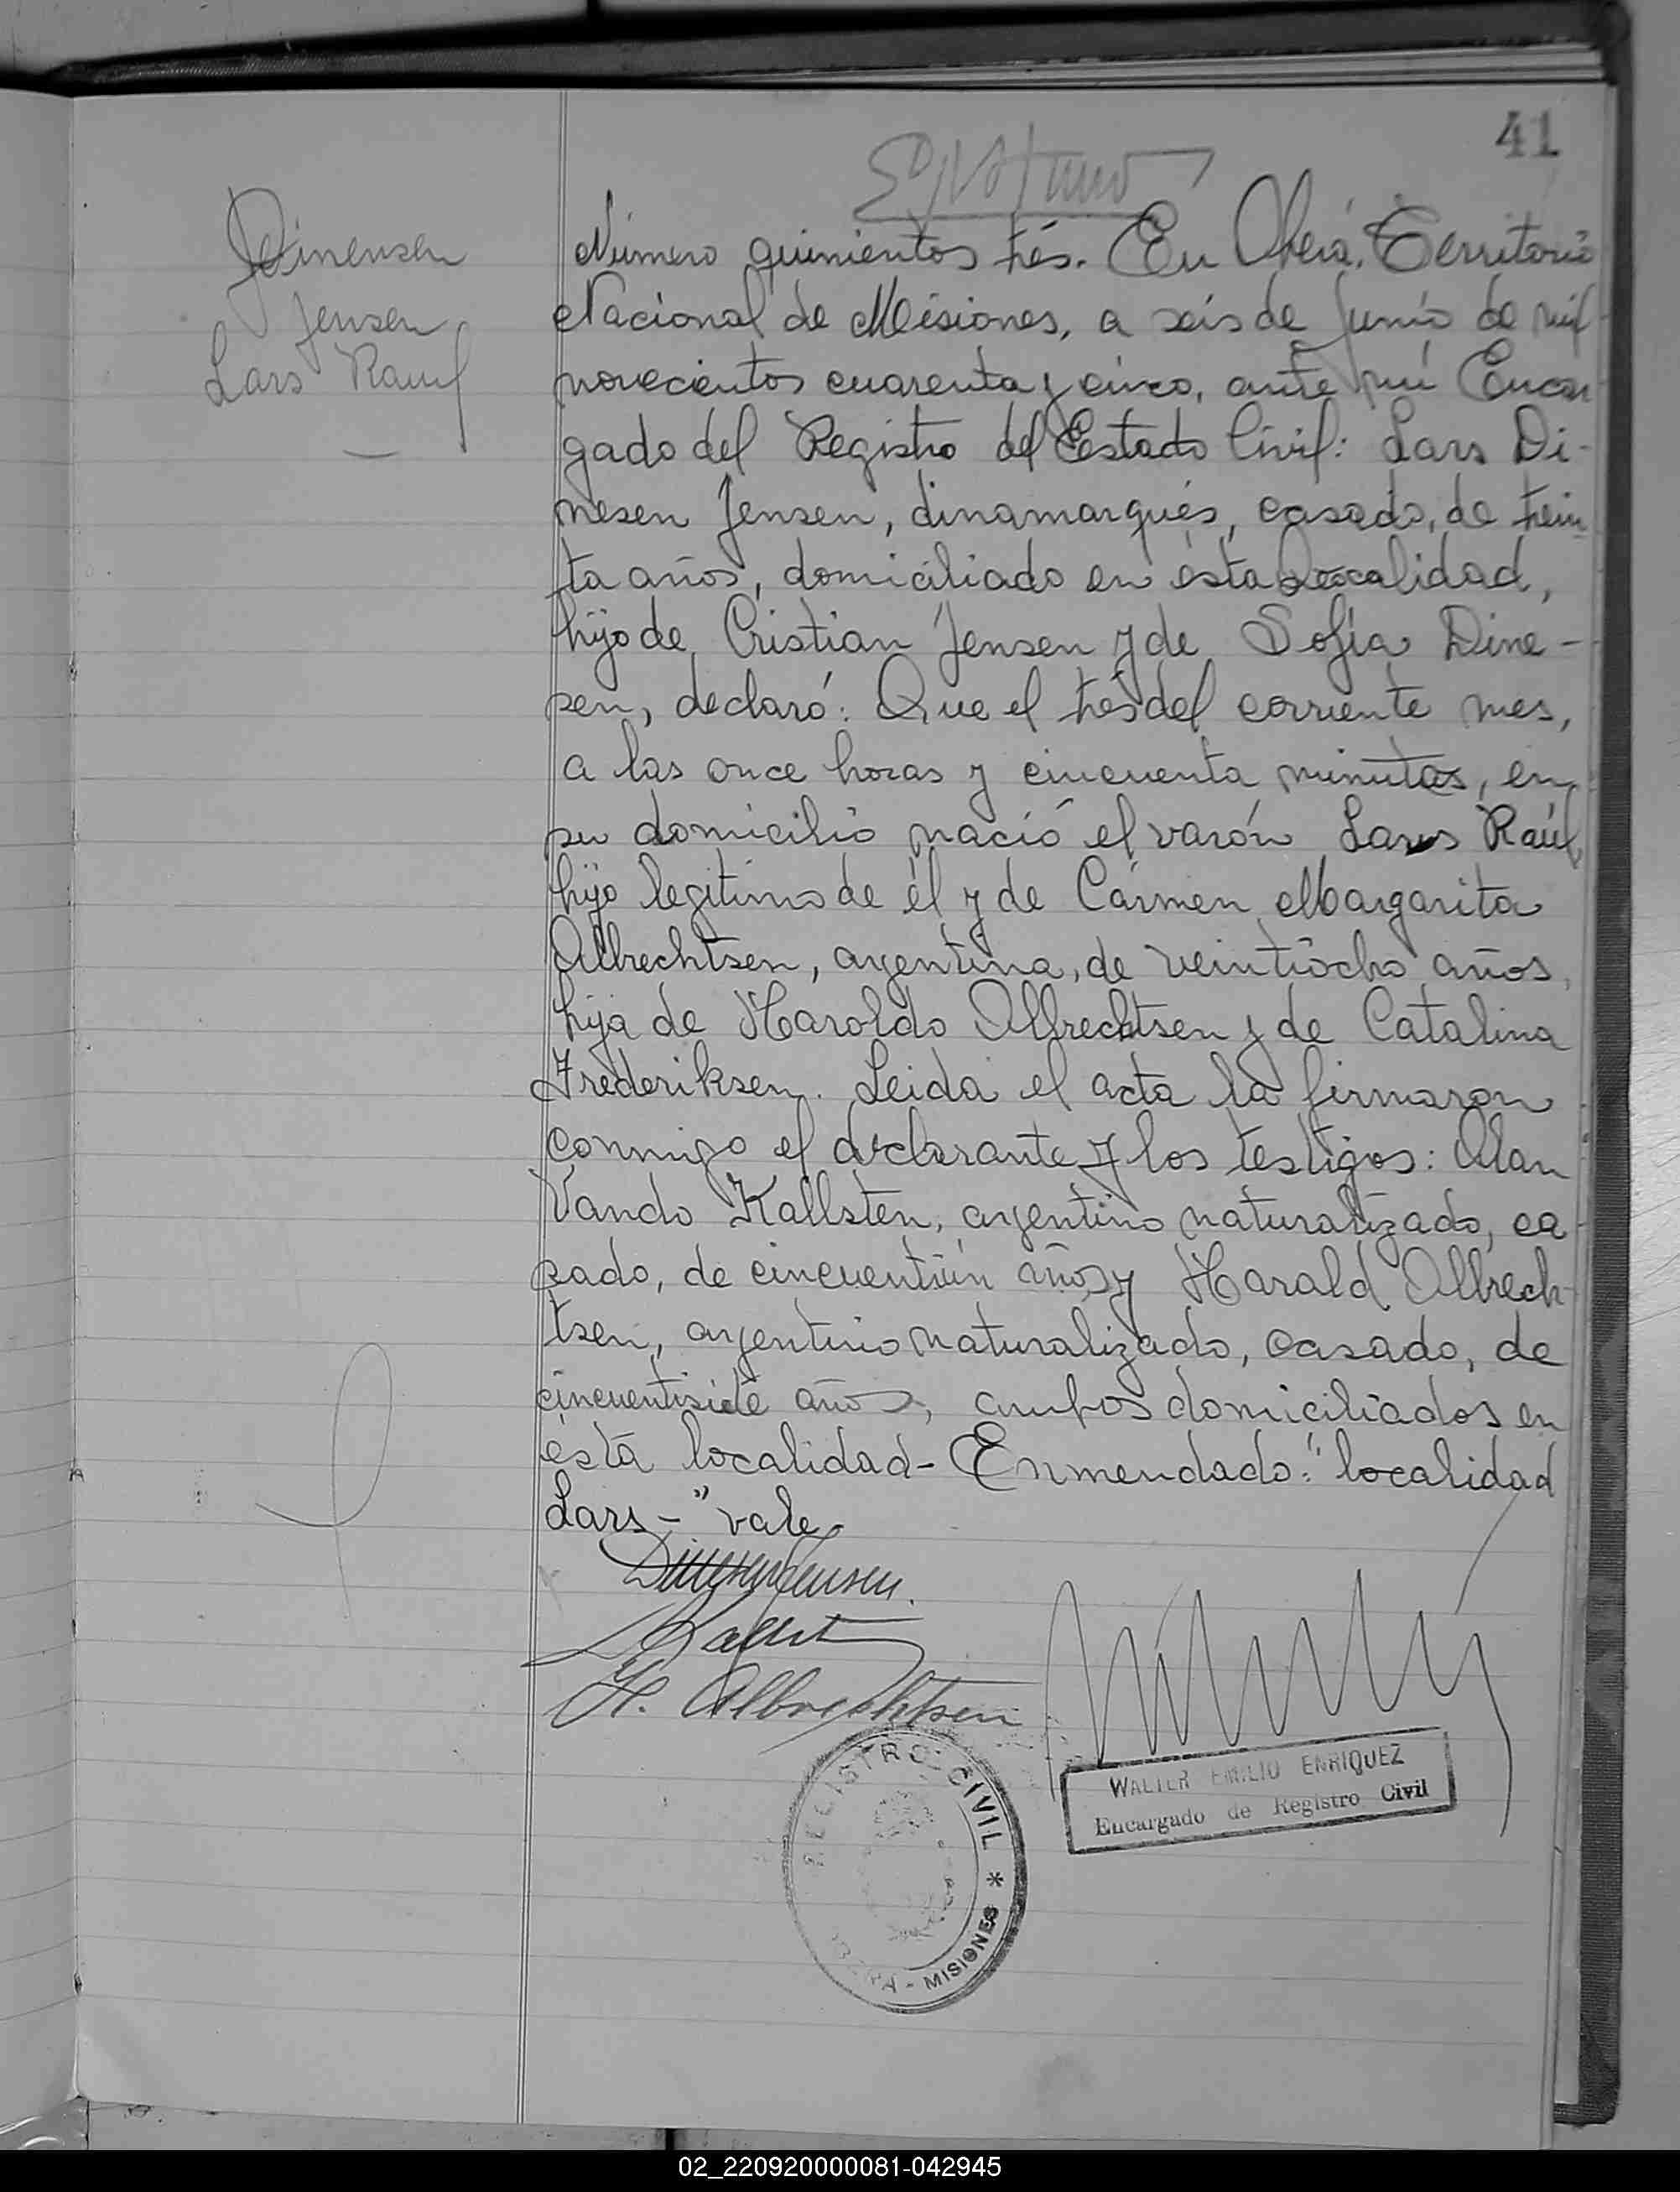 41
Dinensen
Jensen
Lars Raul
Número quinientos trés. En Oberá, Territorio
Nacional de Misiones, a seis de Junio de mil
novecientos cuarenta y cinco, ante mí Encar
gado del Registro del Estado Civil: Lars Di-
nesen Jensen, dinamarqués, casado, de trein
ta años, domiciliado en ésta localidad,
hijo de Cristian Jensen y de Sofía Dine-
sen, declaró: Que el trés del corriente mes,
a las once horas y cincuenta minutos, en
su domicilio nació el varón Lars Raúl,
hijo legitimo de él y de Cármen Margarita
Albrechtsen, argentina, de veintiocho años,
hija de Haroldo Albrechtsen y de Catalina
Frederiksen. Leida el acta la firmaron
conmigo el declarante y los testigos: Olan
Vando Kallsten, argentino naturalizado, ca
sado, de cincuentiún años y Harald Albrech-
tsen, argentino naturalizado, casado, de
cincuentisiete años, ambos domiciliados en
ésta localidad- Enmendado: "localidad
Lars-" vale.
Dinesen Jensen.
H. Albrechtsen
REGISTRO CIVIL * OBERA - MISIONES
WALTER EMILIO ENRIQUEZ
Encargado de Registro Civil
02_220920000081-042945